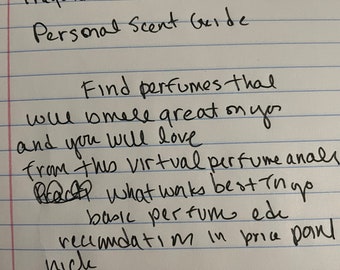 Personal Scent Guide
Find perfumes that
will smell great on you
and you will love
from this virtual perfume
what works best
basic perfume edu
in price point